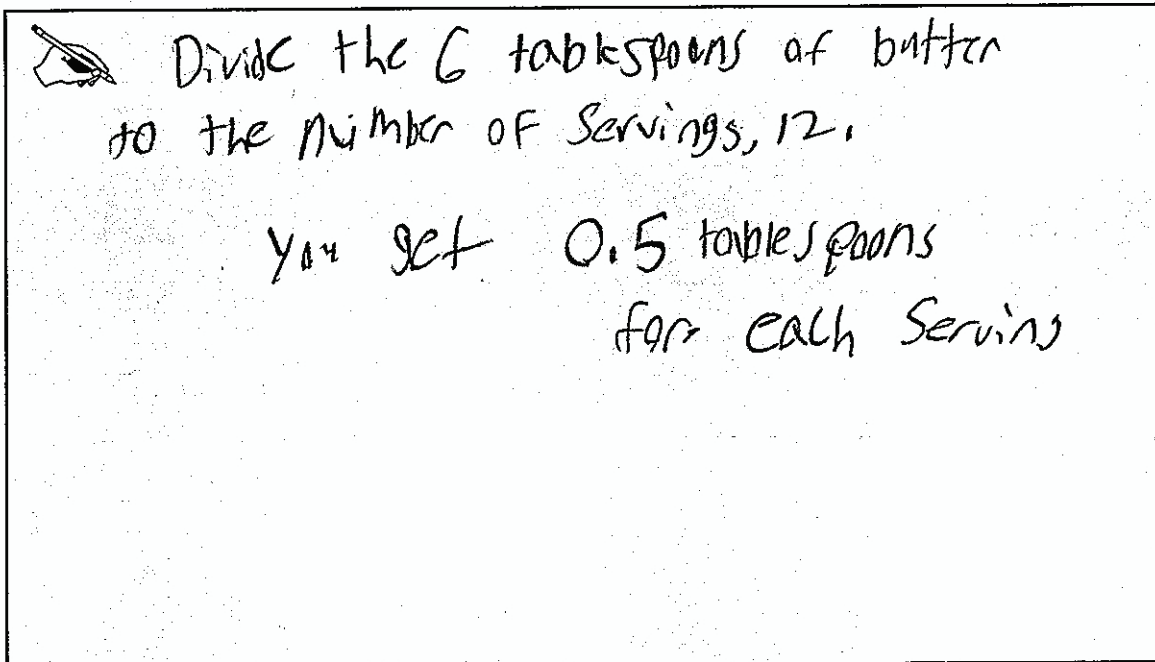 Divide the 6 tablespoons of butter
to the number of Servings, 12.
you get 0.5 tablespoons
for each Serving